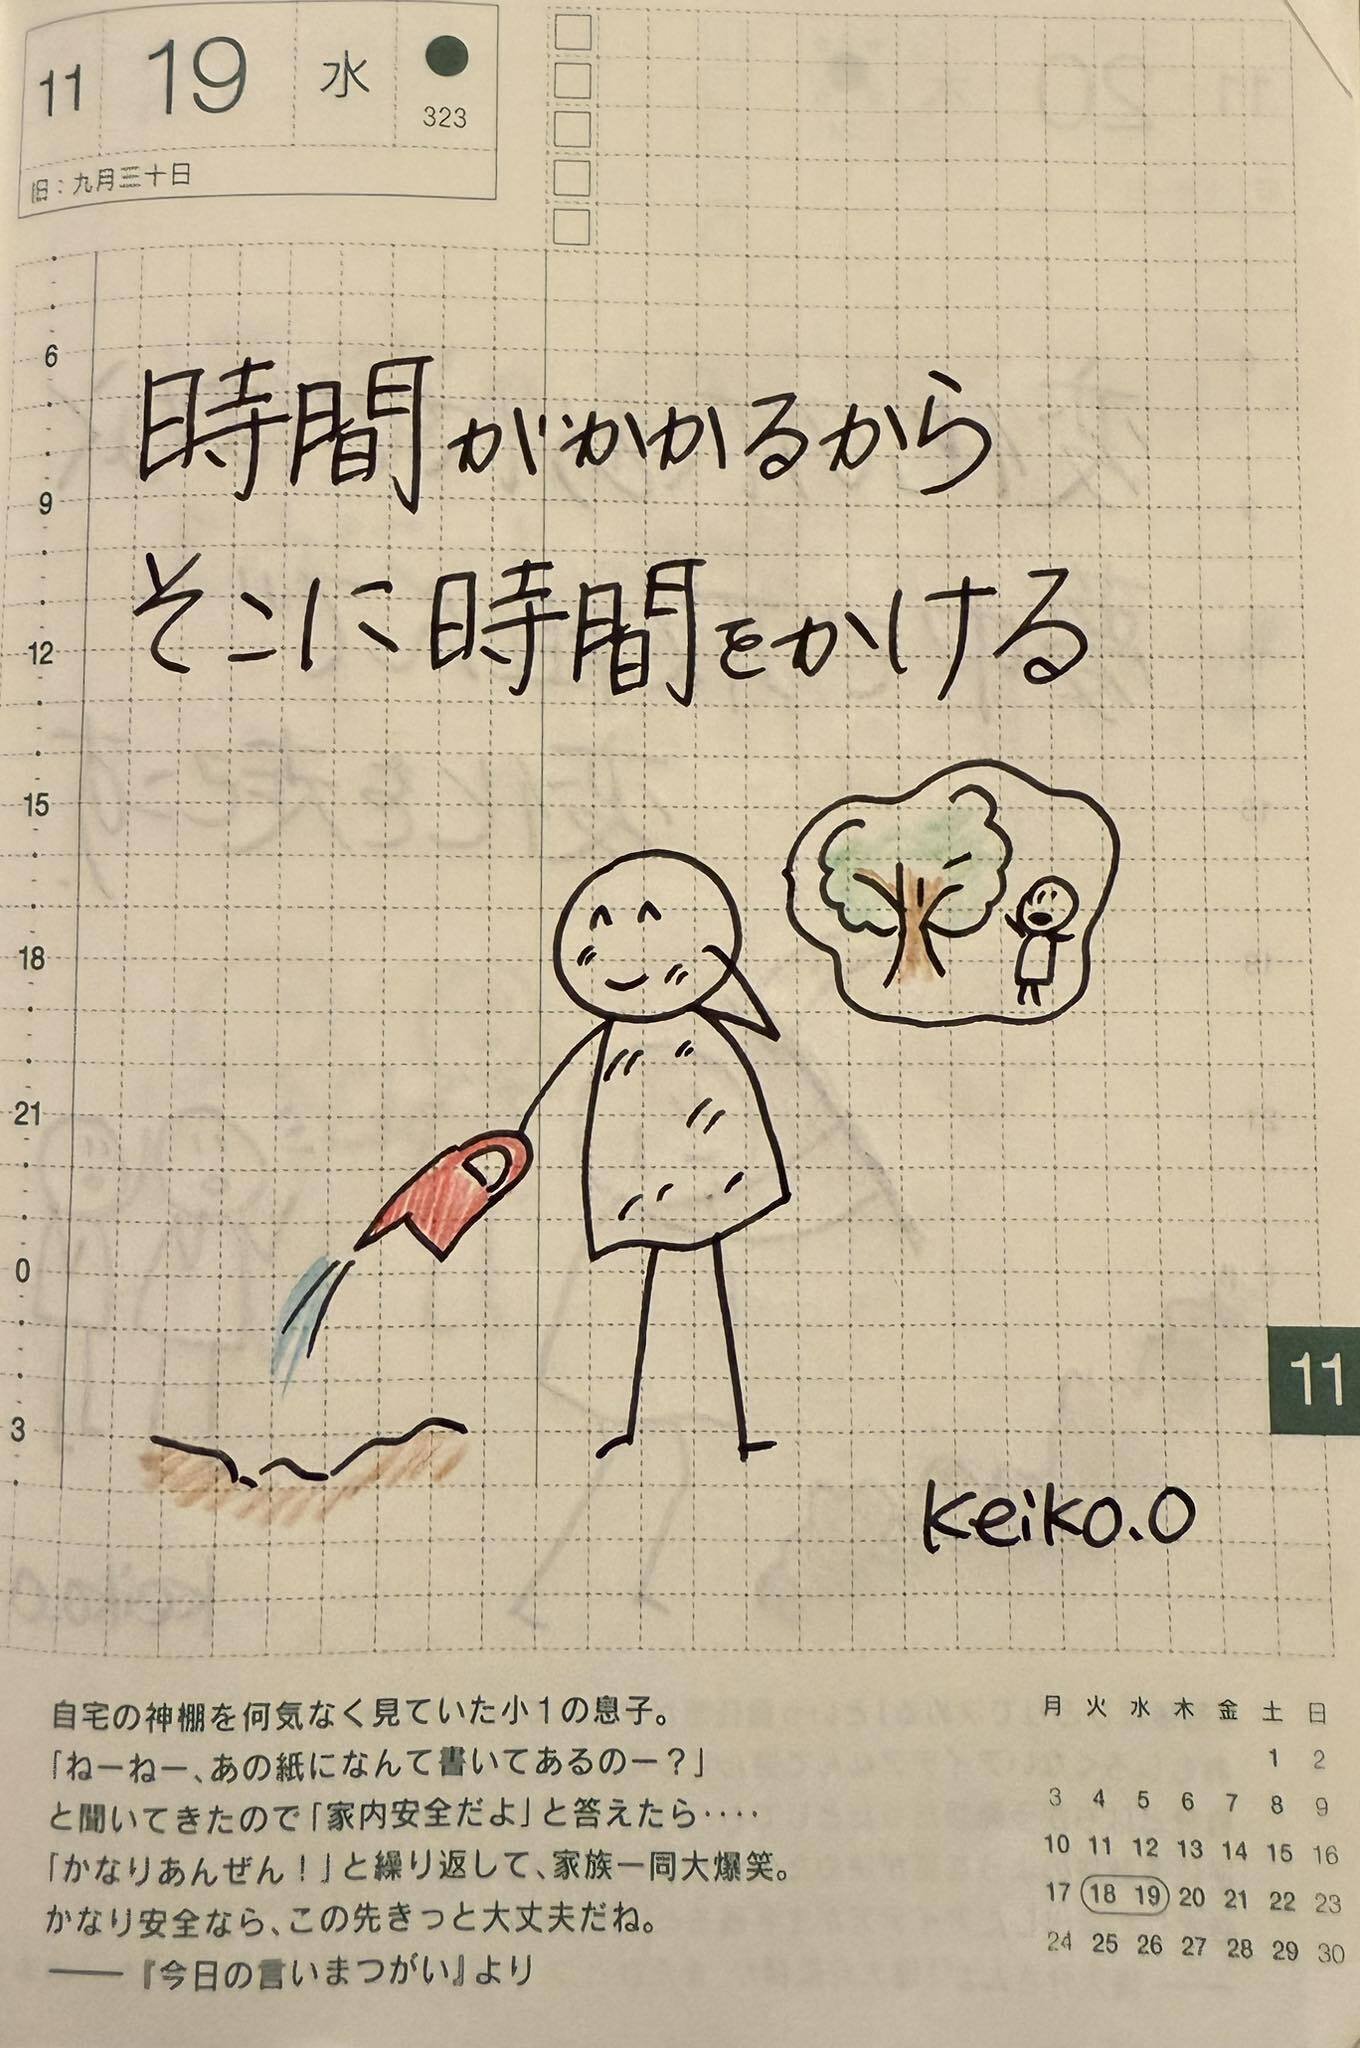 11 19 水
323
旧：九月三十日
時間がかかるから
そこに時間をかける
6
9
12
15
18
21
0
3
11
keiko.O
自宅の神棚を何気なく見ていた小1の息子。
「ねーねー、あの紙になんて書いてあるのー？」
と聞いてきたので「家内安全だよ」と答えたら‥‥
「かなりあんぜん！」と繰り返して、家族一同大爆笑。
かなり安全なら、この先きっと大丈夫だね。
――『今日の言いまつがい』より
月 火 水 木 金 土 日
1 2
3 4 5 6 7 8 9
10 11 12 13 14 15 16
17 18 19 20 21 22 23
24 25 26 27 28 29 30